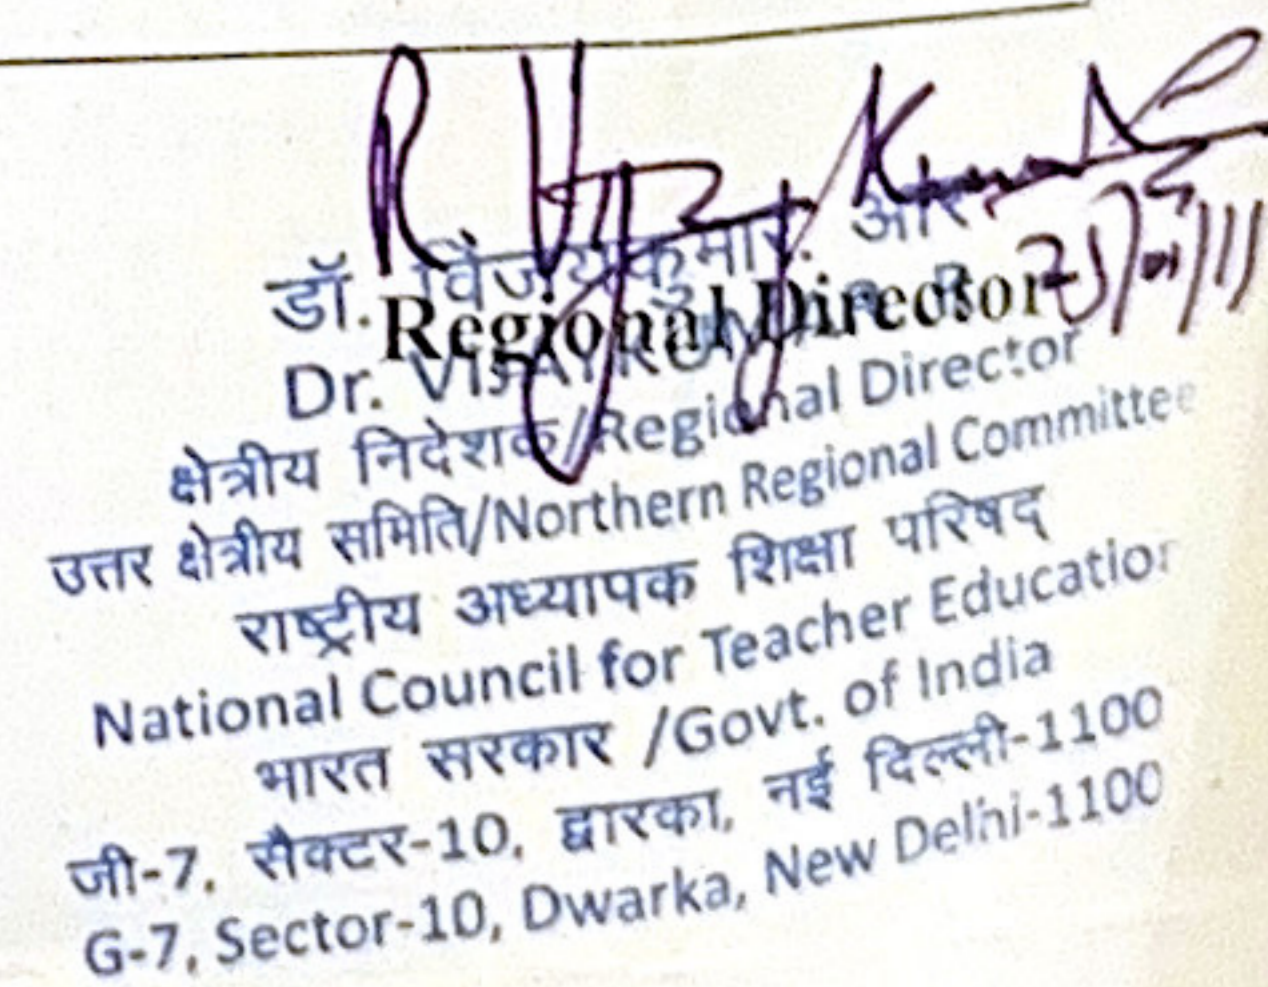 R Vijaya Kumar
डॉ. विजयकुमार. आर
Regional Director
Dr. VIJAYKUMAR R
क्षेत्रीय निदेशक/Regional Director
उत्तर क्षेत्रीय समिति/Northern Regional Committee
राष्ट्रीय अध्यापक शिक्षा परिषद्
National Council for Teacher Education
भारत सरकार /Govt. of India
जी-7, सैक्टर-10, द्वारका, नई दिल्ली-1100
G-7, Sector-10, Dwarka, New Delhi-1100